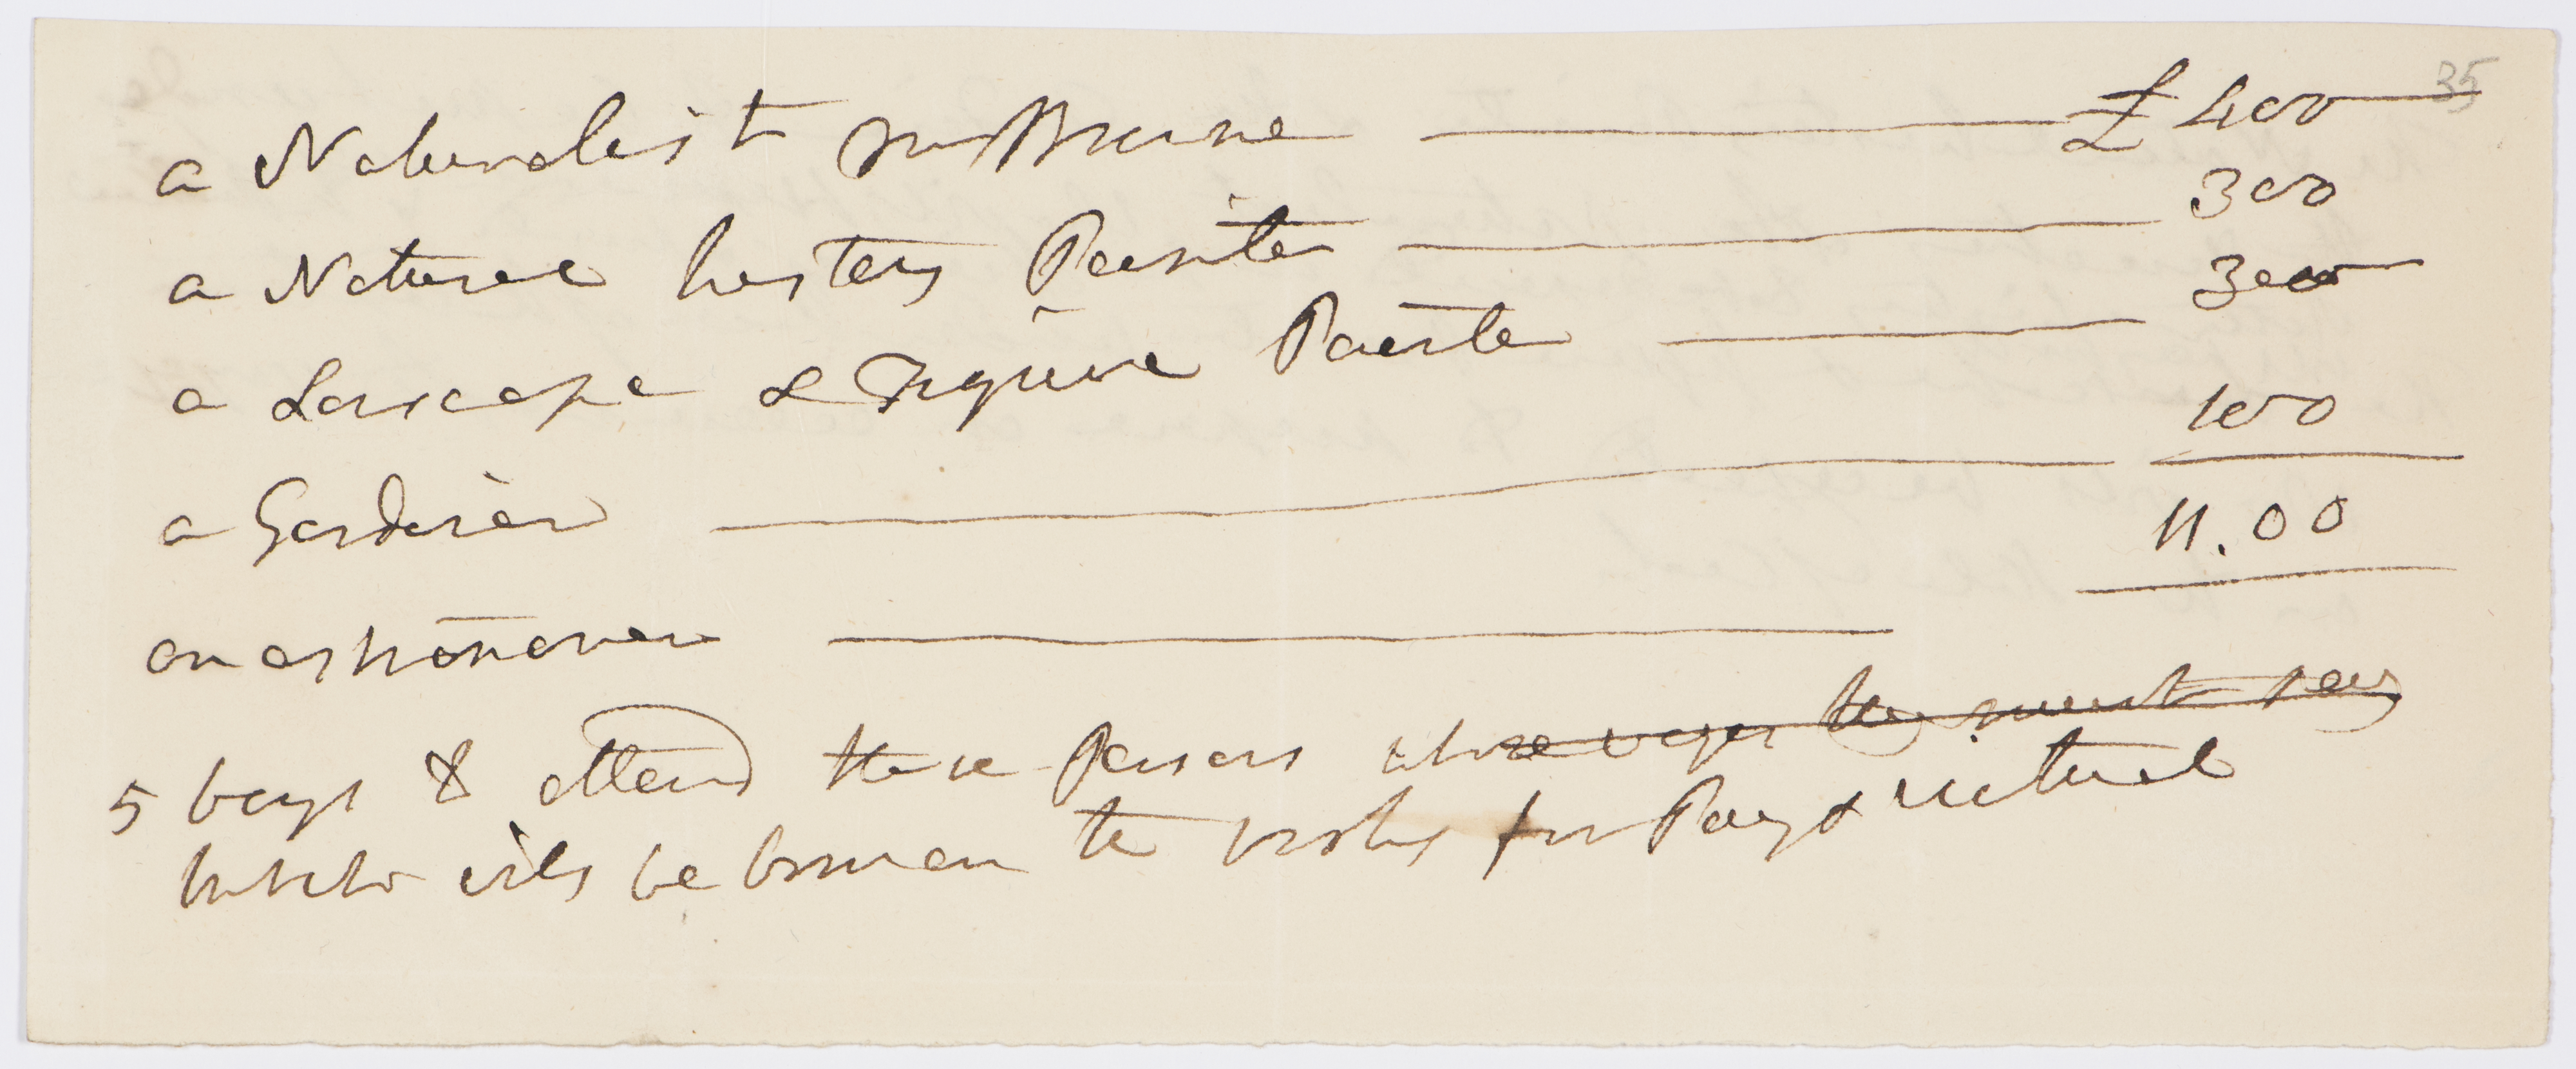 35
a Naturalist Mr Brown £400
a Natural history Painter 300
a Lanscape & Figure Painter 300
a Gardiner 100
11.00
an astronomer
5 boys to attend these Persons whose wages they must pay
who will be born on the books for Pay & victual